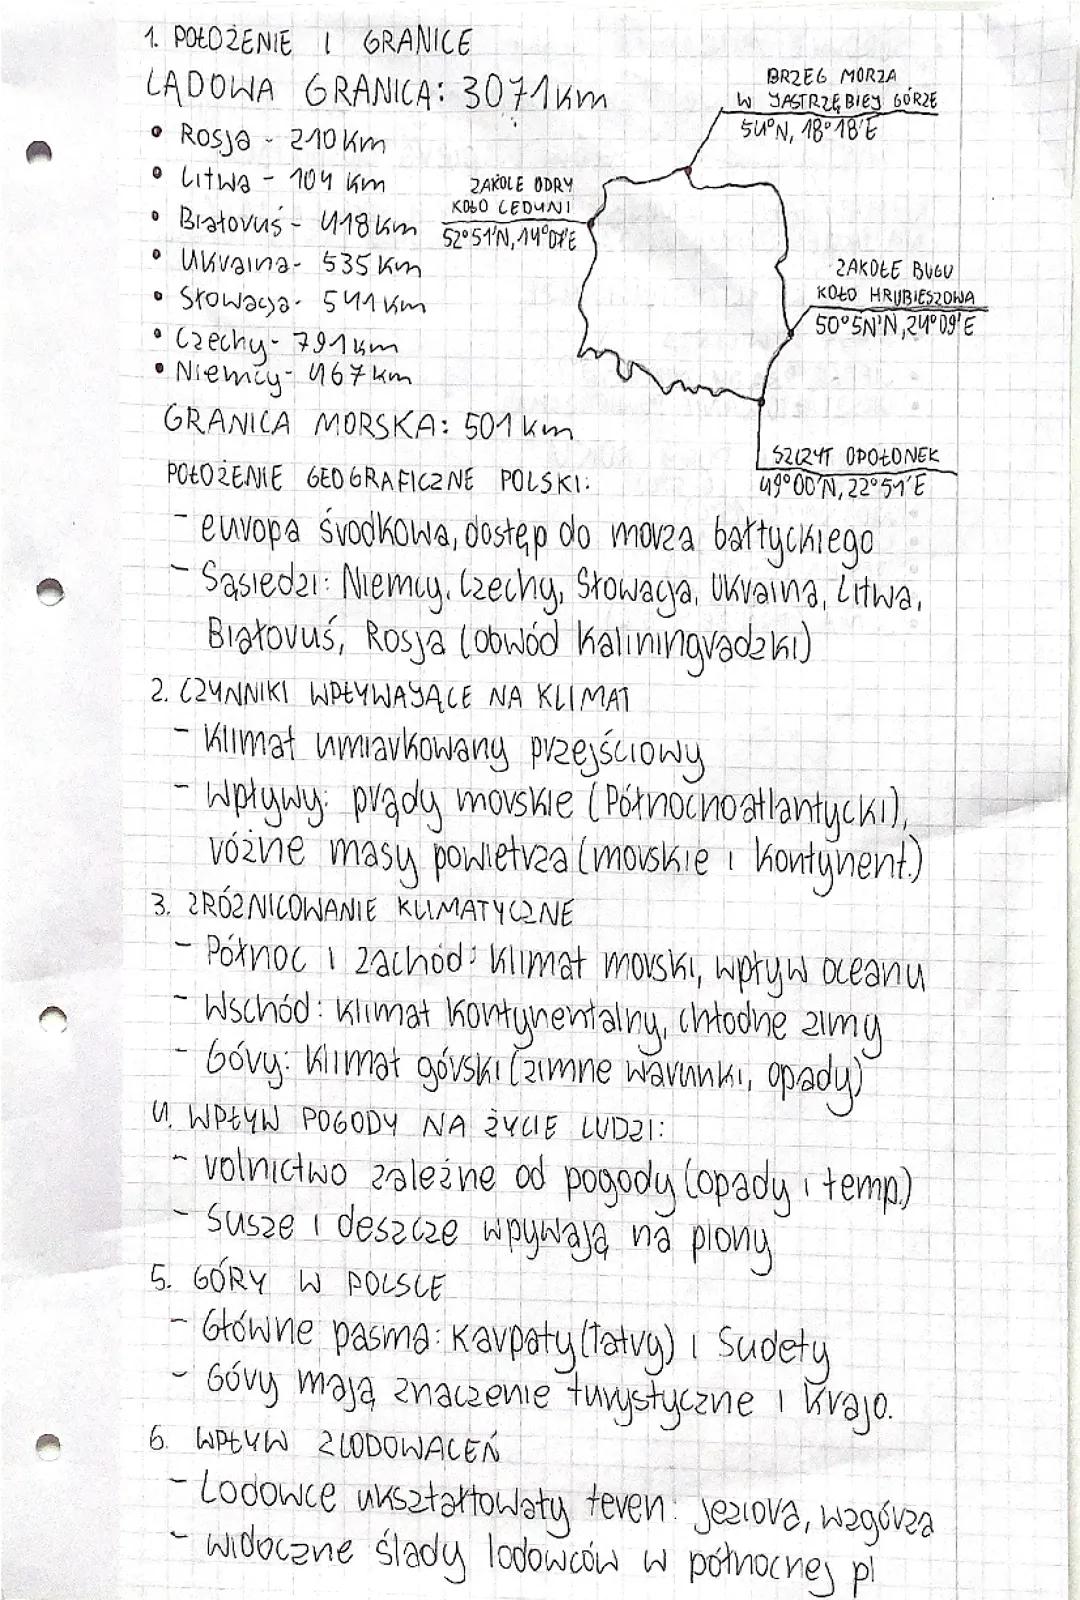 1. POŁOŻENIE I GRANICE
LĄDOWA GRANICA: 3071 km
• Rosja - 210 km
• Litwa - 104 km
• Białoruś - 418 km
• Ukraina - 535 km
• Słowacja - 541 km
• Czechy - 791 km
• Niemcy - 467 km
GRANICA MORSKA: 501 km
BRZEG MORZA
W JASTRZĘBIEJ GÓRZE
54°N, 18°18'E
ZAKOLE ODRY
KOŁO CEDYNI
52°51'N, 14°07'E
ZAKOLE BUGU
KOŁO HRUBIESZOWA
50°5N'N, 24°09'E
SZCZYT OPOŁONEK
49°00'N, 22°51'E
POŁOŻENIE GEOGRAFICZNE POLSKI:
- europa środkowa, dostęp do morza bałtyckiego
- Sąsiedzi: Niemcy, Czechy, Słowacja, Ukraina, Litwa,
Białoruś, Rosja (obwód kaliningradzki)
2. CZYNNIKI WPŁYWAJĄCE NA KLIMAT
- Klimat umiarkowany przejściowy
- Wpływy: prądy morskie (Północnoatlantycki),
różne masy powietrza (morskie i kontynent.)
3. ZRÓŻNICOWANIE KLIMATYCZNE
- Północ i zachód: klimat morski, wpływ oceanu
- Wschód: klimat kontynentalny, chłodne zimy
- Góry: klimat górski (zimne warunki, opady)
4. WPŁYW POGODY NA ŻYCIE LUDZI:
- rolnictwo zależne od pogody (opady i temp.)
- Susze i deszcze wpywają na plony
5. GÓRY W POLSCE
- Główne pasma: Karpaty (Tatry) i Sudety
- Góry mają znaczenie turystyczne i krajo.
6. WPŁYW ZLODOWACEŃ
- Lodowce ukształtowały teren: jeziora, wzgórza
- widoczne ślady lodowców w północnej pl